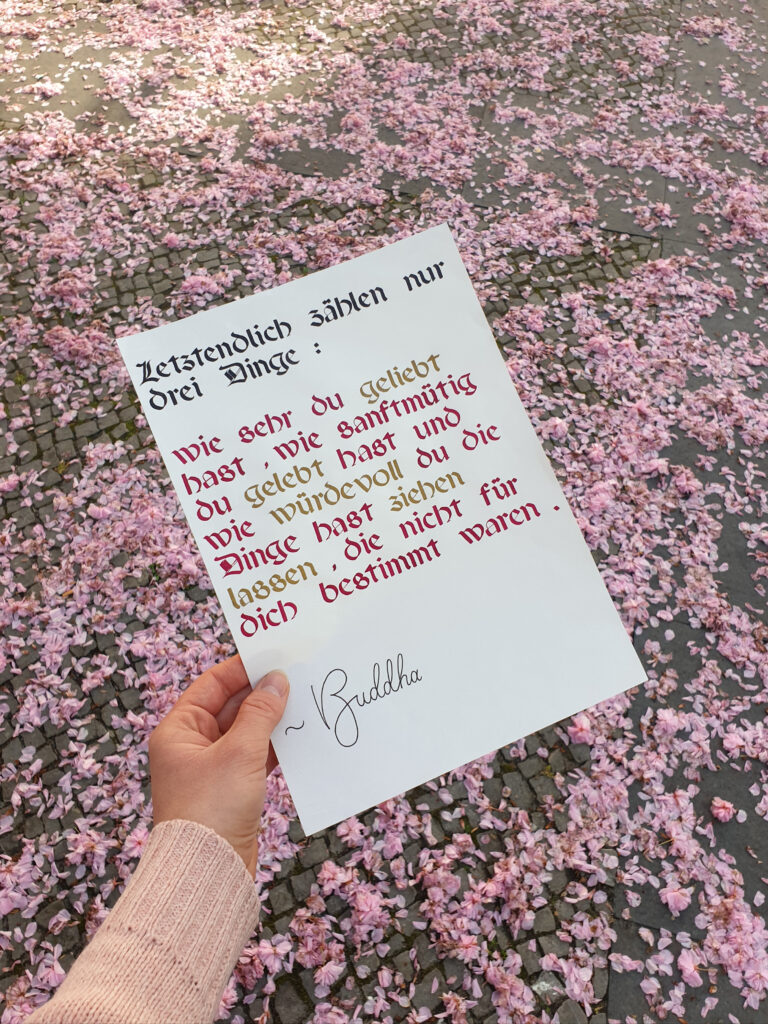 Letztendlich zählen nur
drei Dinge :
wie sehr du geliebt
hast , wie sanftmütig
du gelebt hast und
wie würdevoll du die
Dinge hast ziehen
lassen , die nicht für
dich bestimmt waren .
~ Buddha